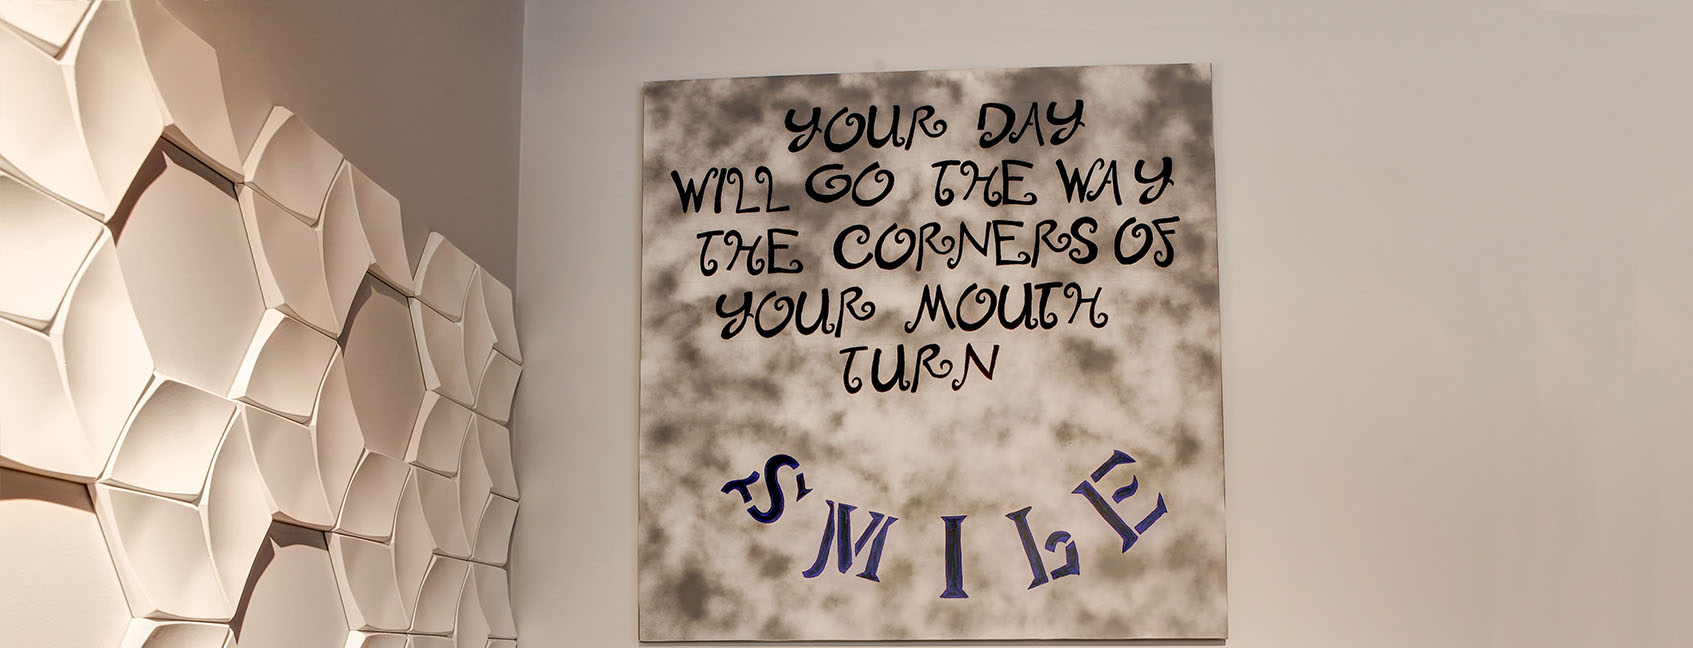 YOUR DAY
WILL GO THE WAY
THE CORNERS OF
YOUR MOUTH
TURN
SMILE